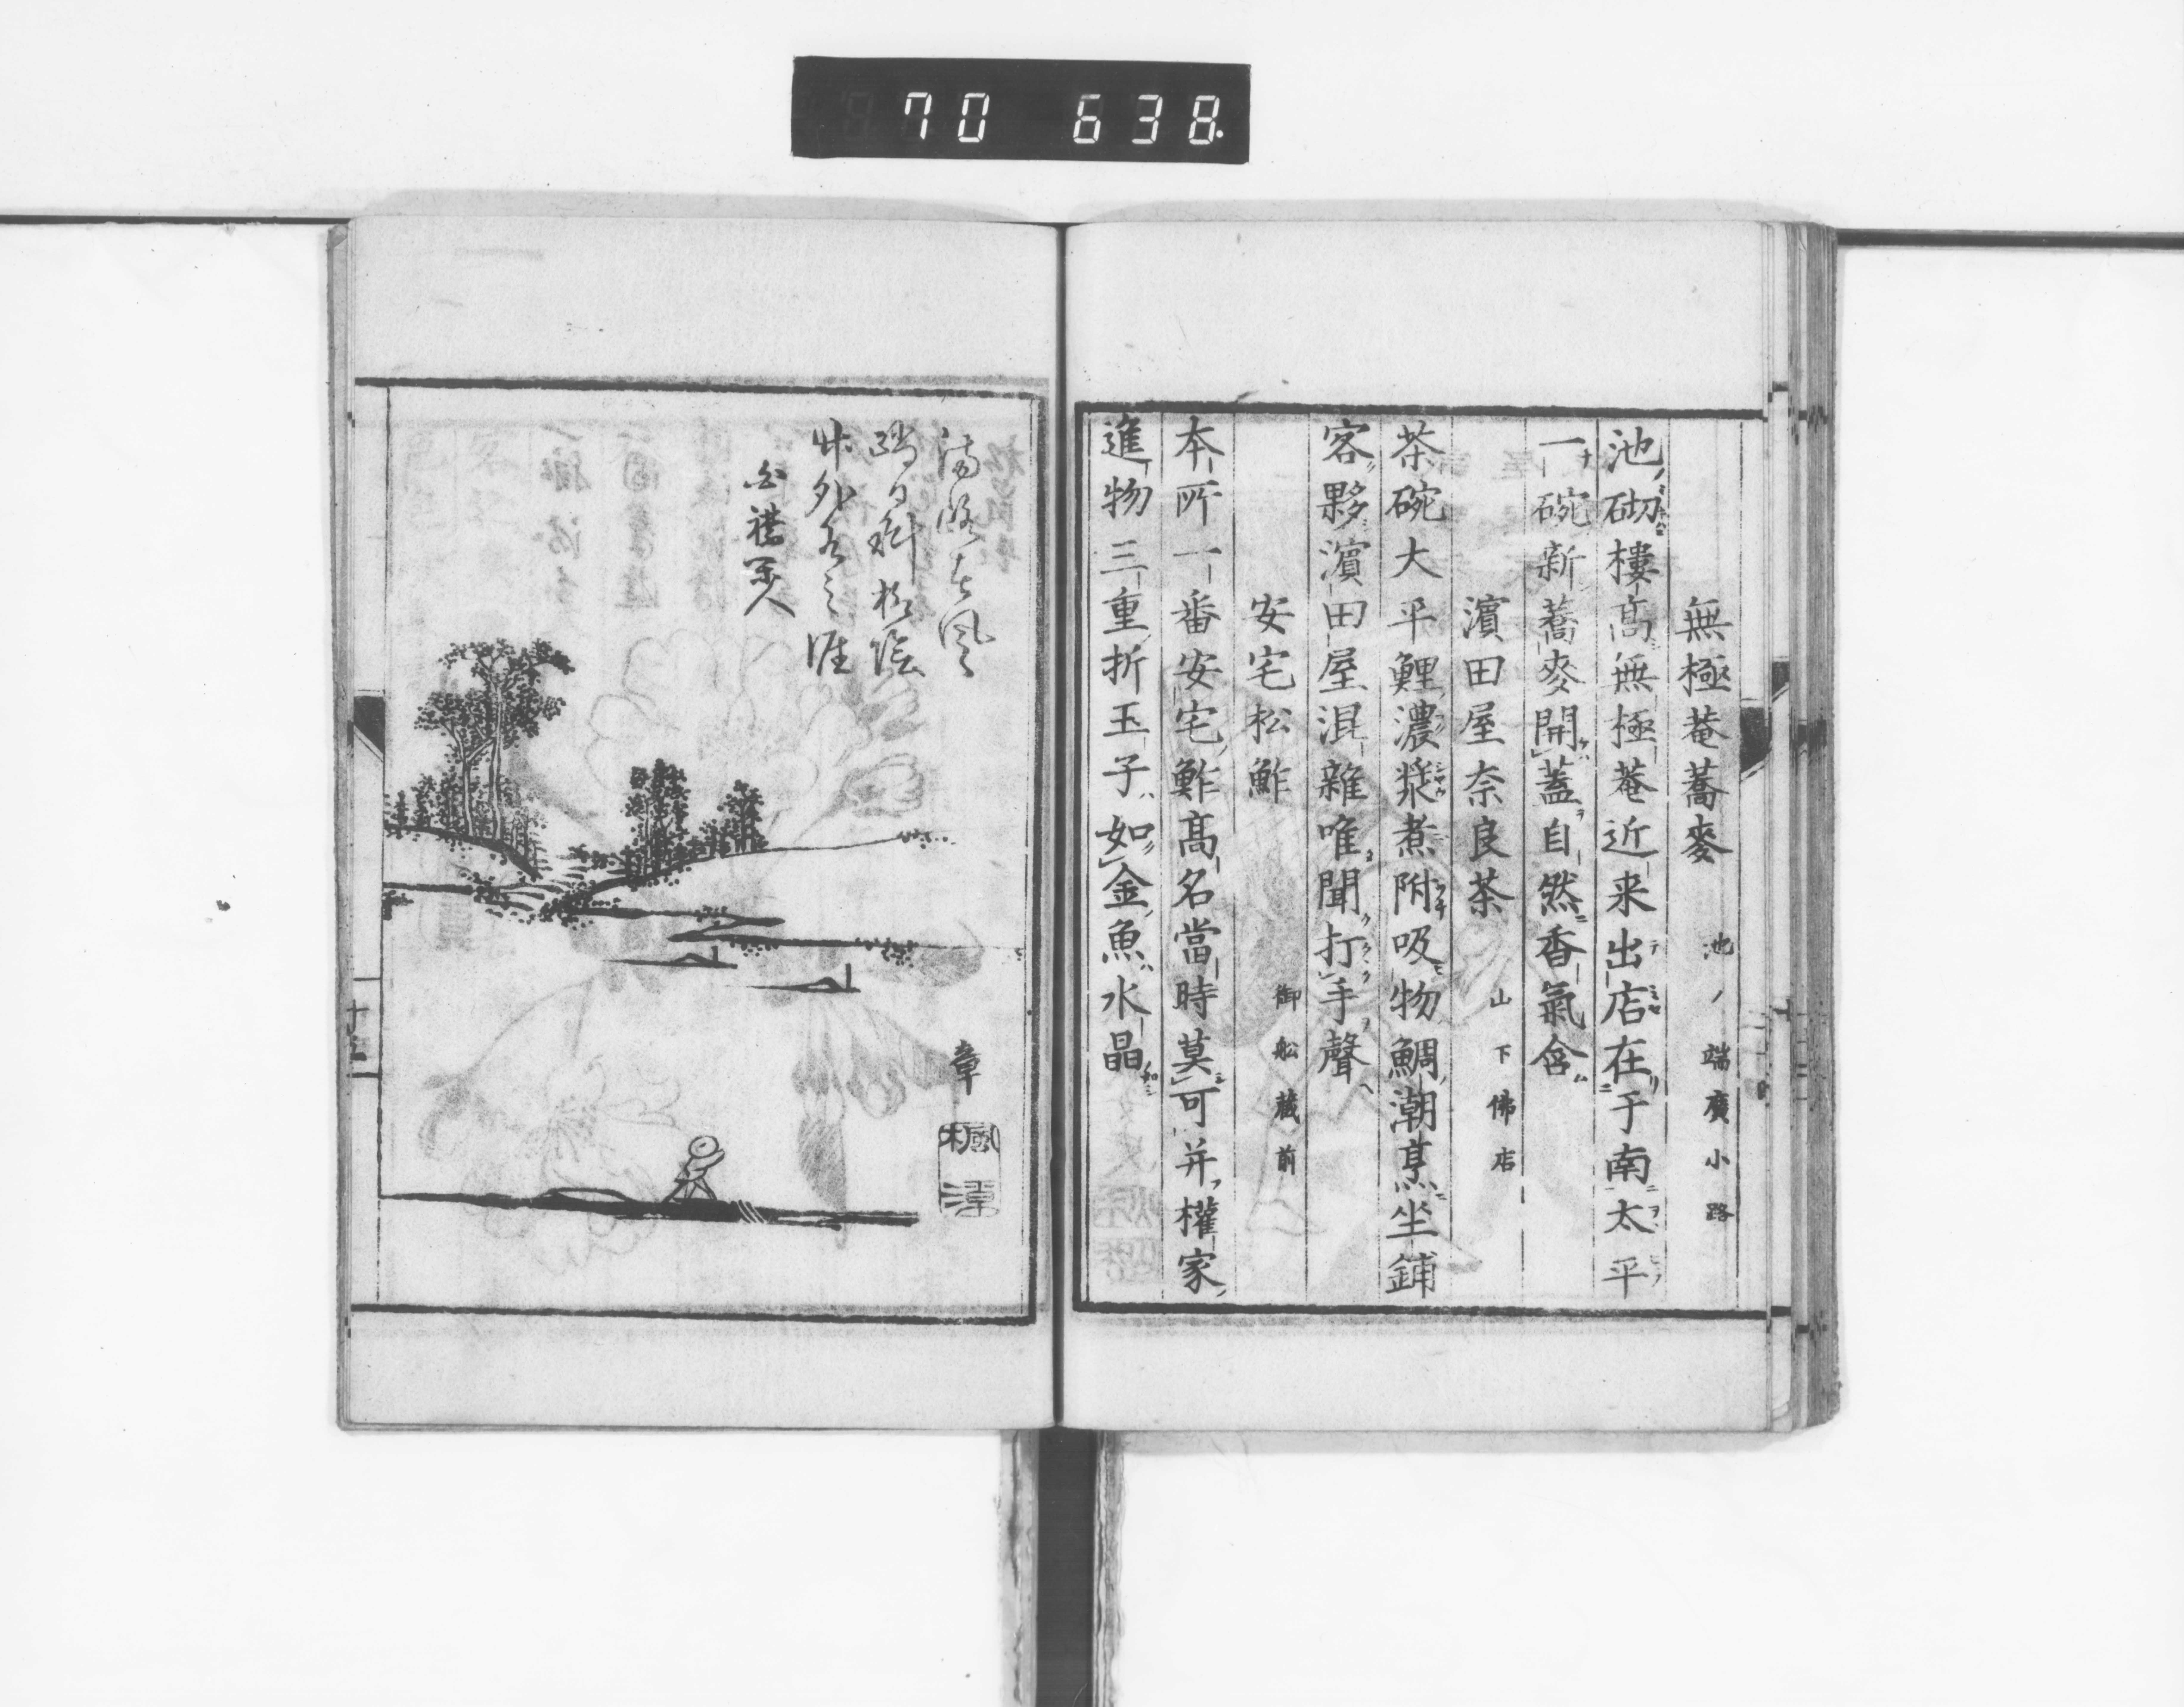 70 638
無極菴蕎麥 池ノ端廣小路
池砌樓高無極菴近来出店在于南太平
一碗新蕎麥開蓋自然香氣含
濱田屋奈良茶 山下佛店
茶碗大平鯉濃漿煮附吸物鯛潮烹坐鋪
客夥濱田屋混雜唯聞打手聲
安宅松鮓 御舩蔵前
本所一番安宅鮓高名當時莫可并權家
進物三重折玉子如金魚水晶
章
楓湖